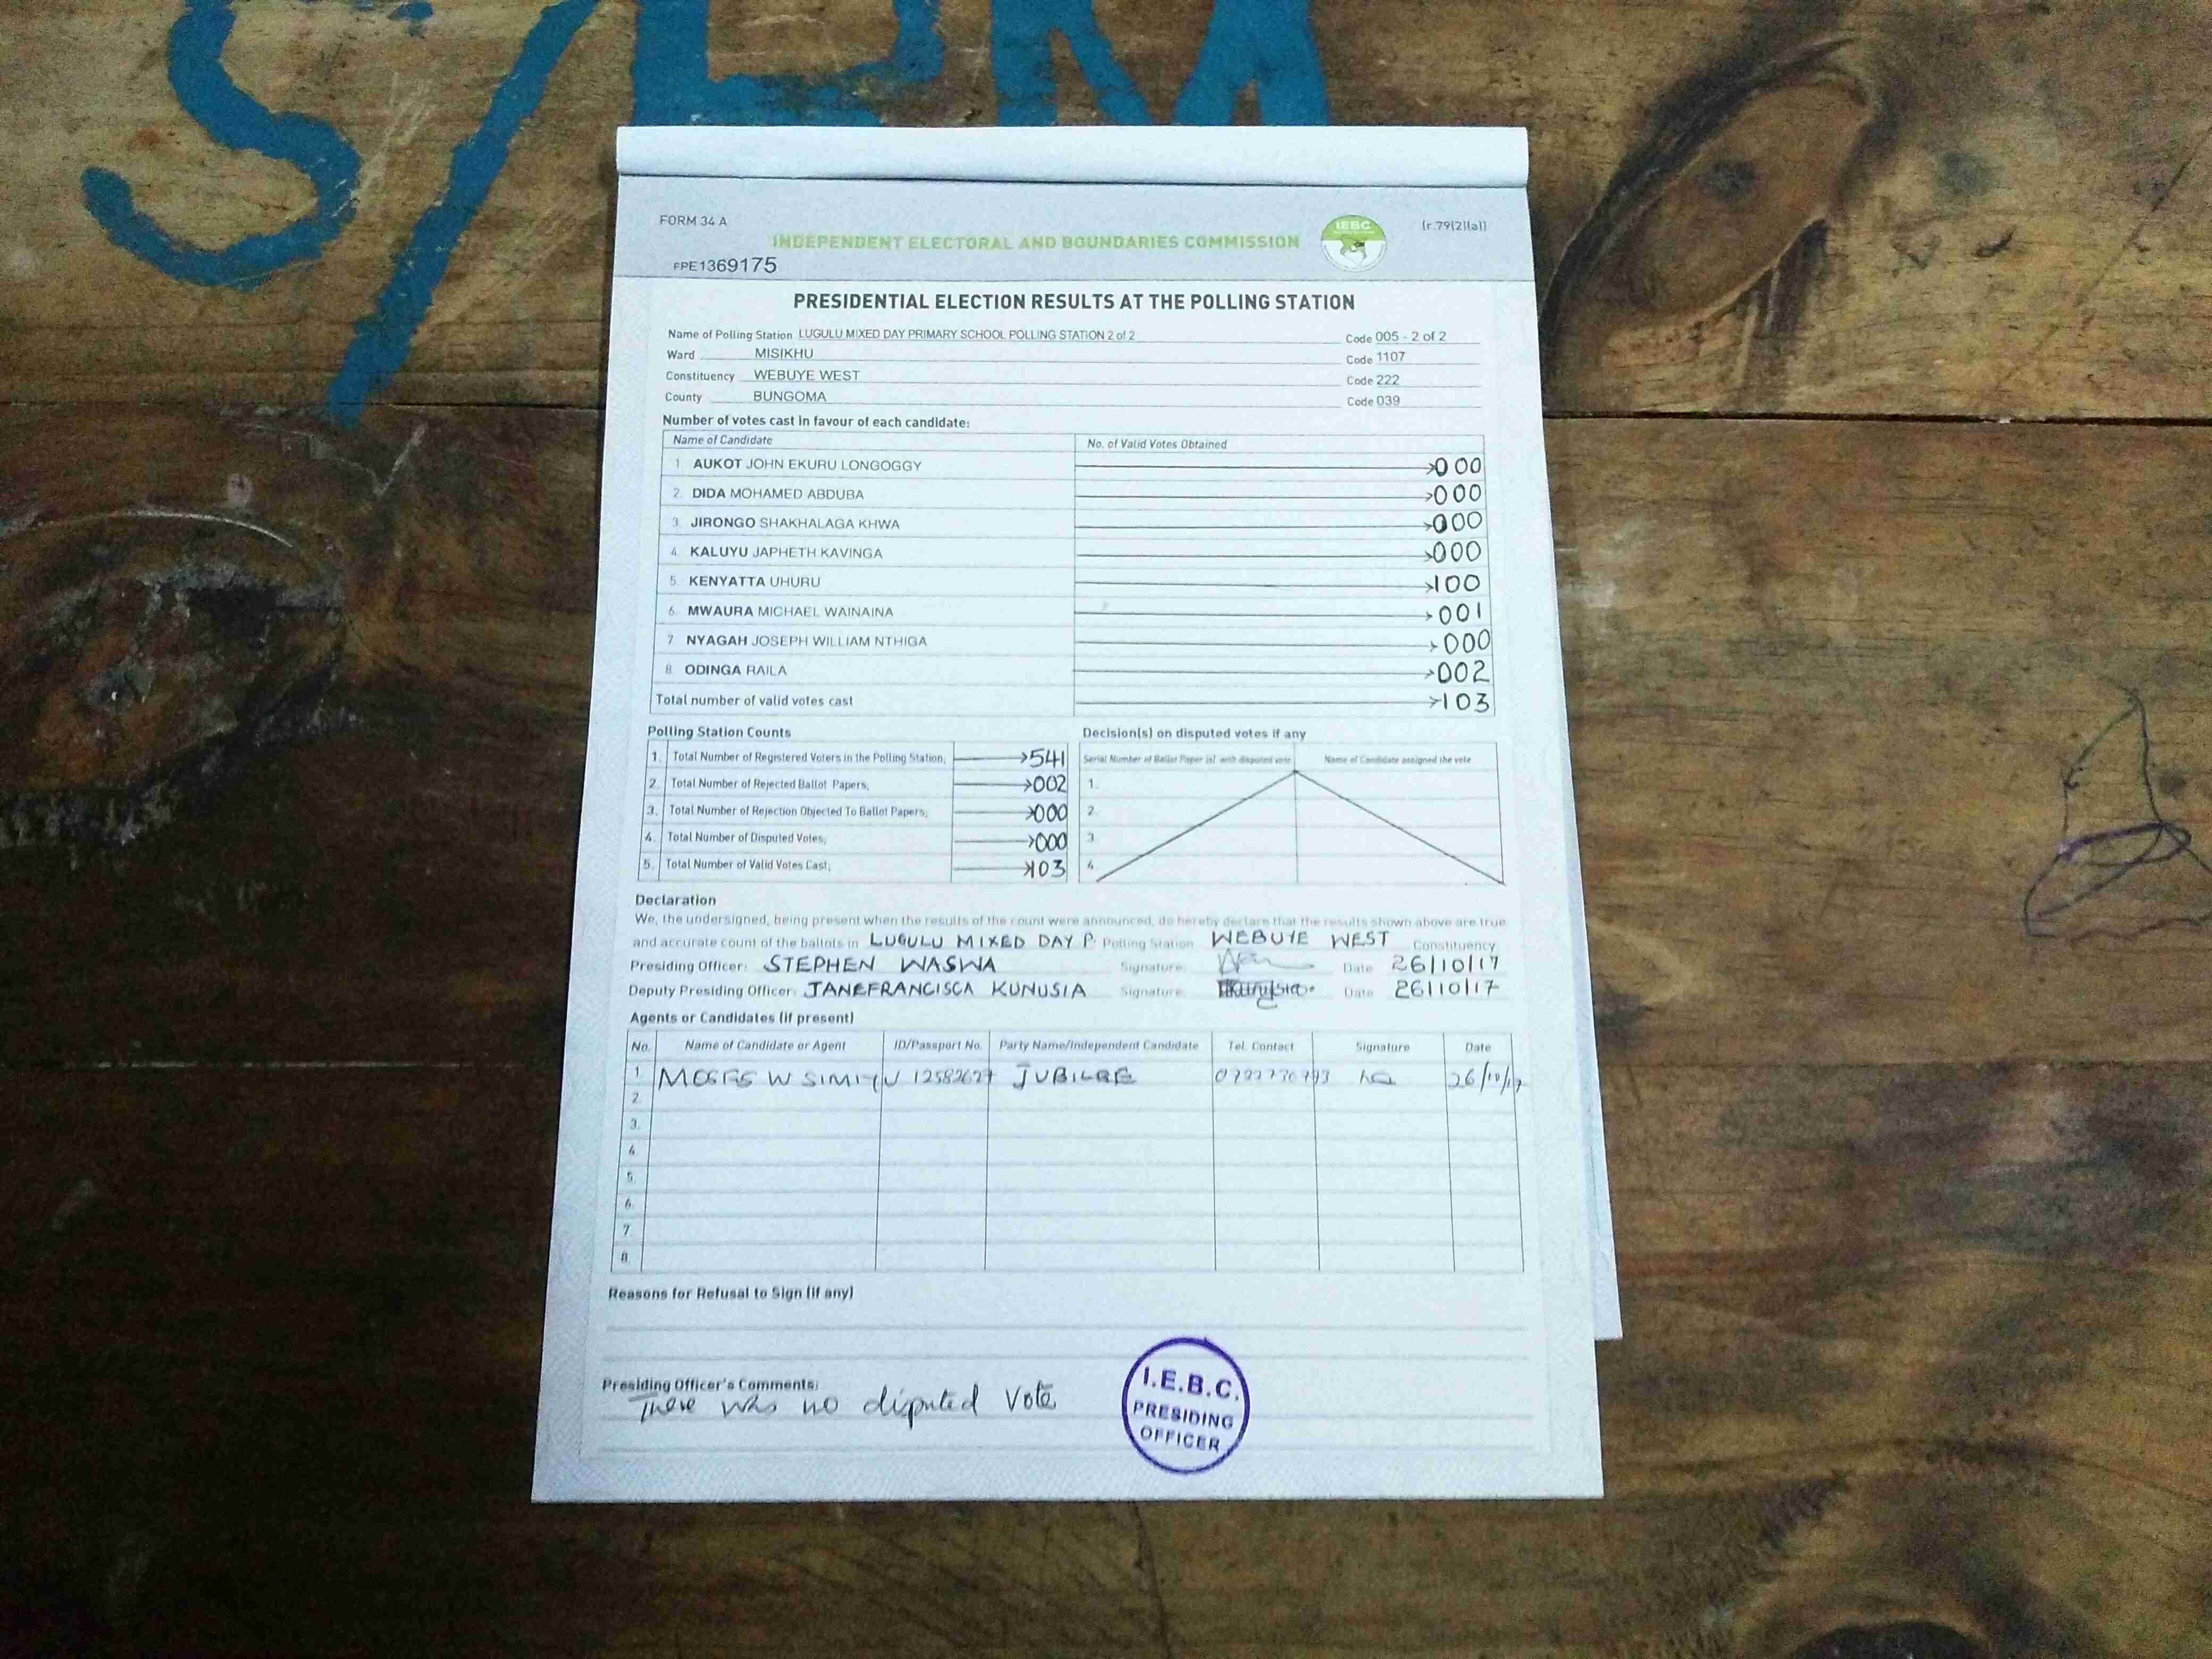 S/RM
FORM 34 A
[r.79(2)(a)]
INDEPENDENT ELECTORAL AND BOUNDARIES COMMISSION
IEBC
FPE1369175
PRESIDENTIAL ELECTION RESULTS AT THE POLLING STATION
Name of Polling Station LUGULU MIXED DAY PRIMARY SCHOOL POLLING STATION 2 of 2 Code 005 - 2 of 2
Ward MISIKHU Code 1107
Constituency WEBUYE WEST Code 222
County BUNGOMA Code 039
Number of votes cast in favour of each candidate:
Name of Candidate No. of Valid Votes Obtained
1 AUKOT JOHN EKURU LONGOGGY 000
2. DIDA MOHAMED ABDUBA 000
3. JIRONGO SHAKHALAGA KHWA 000
4. KALUYU JAPHETH KAVINGA 000
5. KENYATTA UHURU 100
6. MWAURA MICHAEL WAINAINA 001
7 NYAGAH JOSEPH WILLIAM NTHIGA 000
8. ODINGA RAILA 002
Total number of valid votes cast 103
Polling Station Counts
1. Total Number of Registered Voters in the Polling Station; 541
2. Total Number of Rejected Ballot Papers; 002
3. Total Number of Rejection Objected To Ballot Papers; 000
4. Total Number of Disputed Votes; 000
5. Total Number of Valid Votes Cast; 103
Decision(s) on disputed votes if any
Serial Number of Ballot Paper (s) with disputed vote Name of Candidate assigned the vote
1.
2.
3
4
Declaration
We, the undersigned, being present when the results of the count were announced, do hereby declare that the results shown above are true
and accurate count of the ballots in LUGULU MIXED DAY P. Polling Station WEBUYE WEST Constituency
Presiding Officer: STEPHEN WASWA Signature: Date 26/10/17
Deputy Presiding Officer: JANEFRANCISCA KUNUSIA Signature: Date 26/10/17
Agents or Candidates (if present)
No. Name of Candidate or Agent ID/Passport No. Party Name/Independent Candidate Tel. Contact Signature Date
1 MOSES W SIMIYU JUBILEE 26/10/17
2.
3.
4
5.
6.
7
8.
Reasons for Refusal to Sign (if any)
Presiding Officer's Comments:
There was no disputed vote
I.E.B.C.
PRESIDING
OFFICER